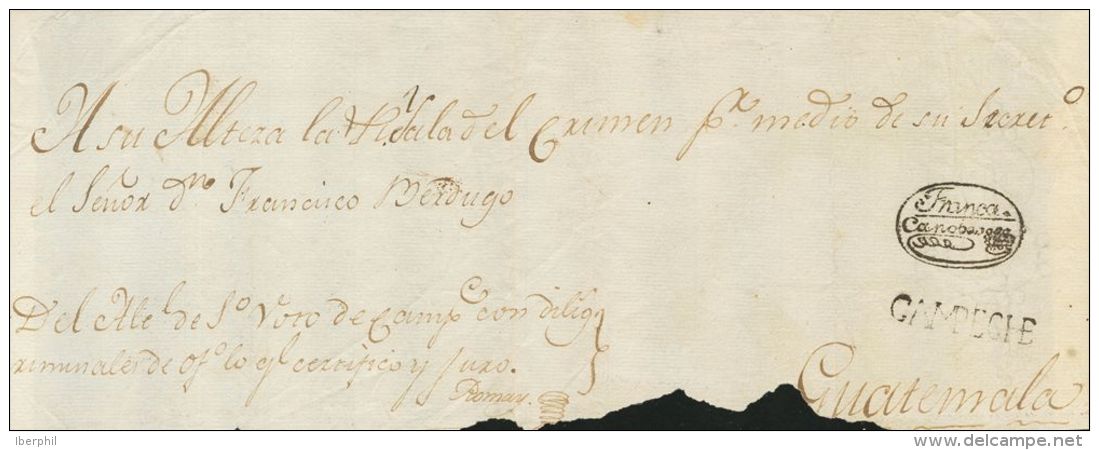 A su Alteza la Rl. Sala del Crimen pr. medio de su Secreto.
el Señor dn. Francisco Berdugo
Franca
CAMPECHE
Del Alcl. de 2o. Voto de Campe. con dilig
riminales de ofo. lo ql certifico y Juro.
Guatemala
Iberphil
www.delcampe.net